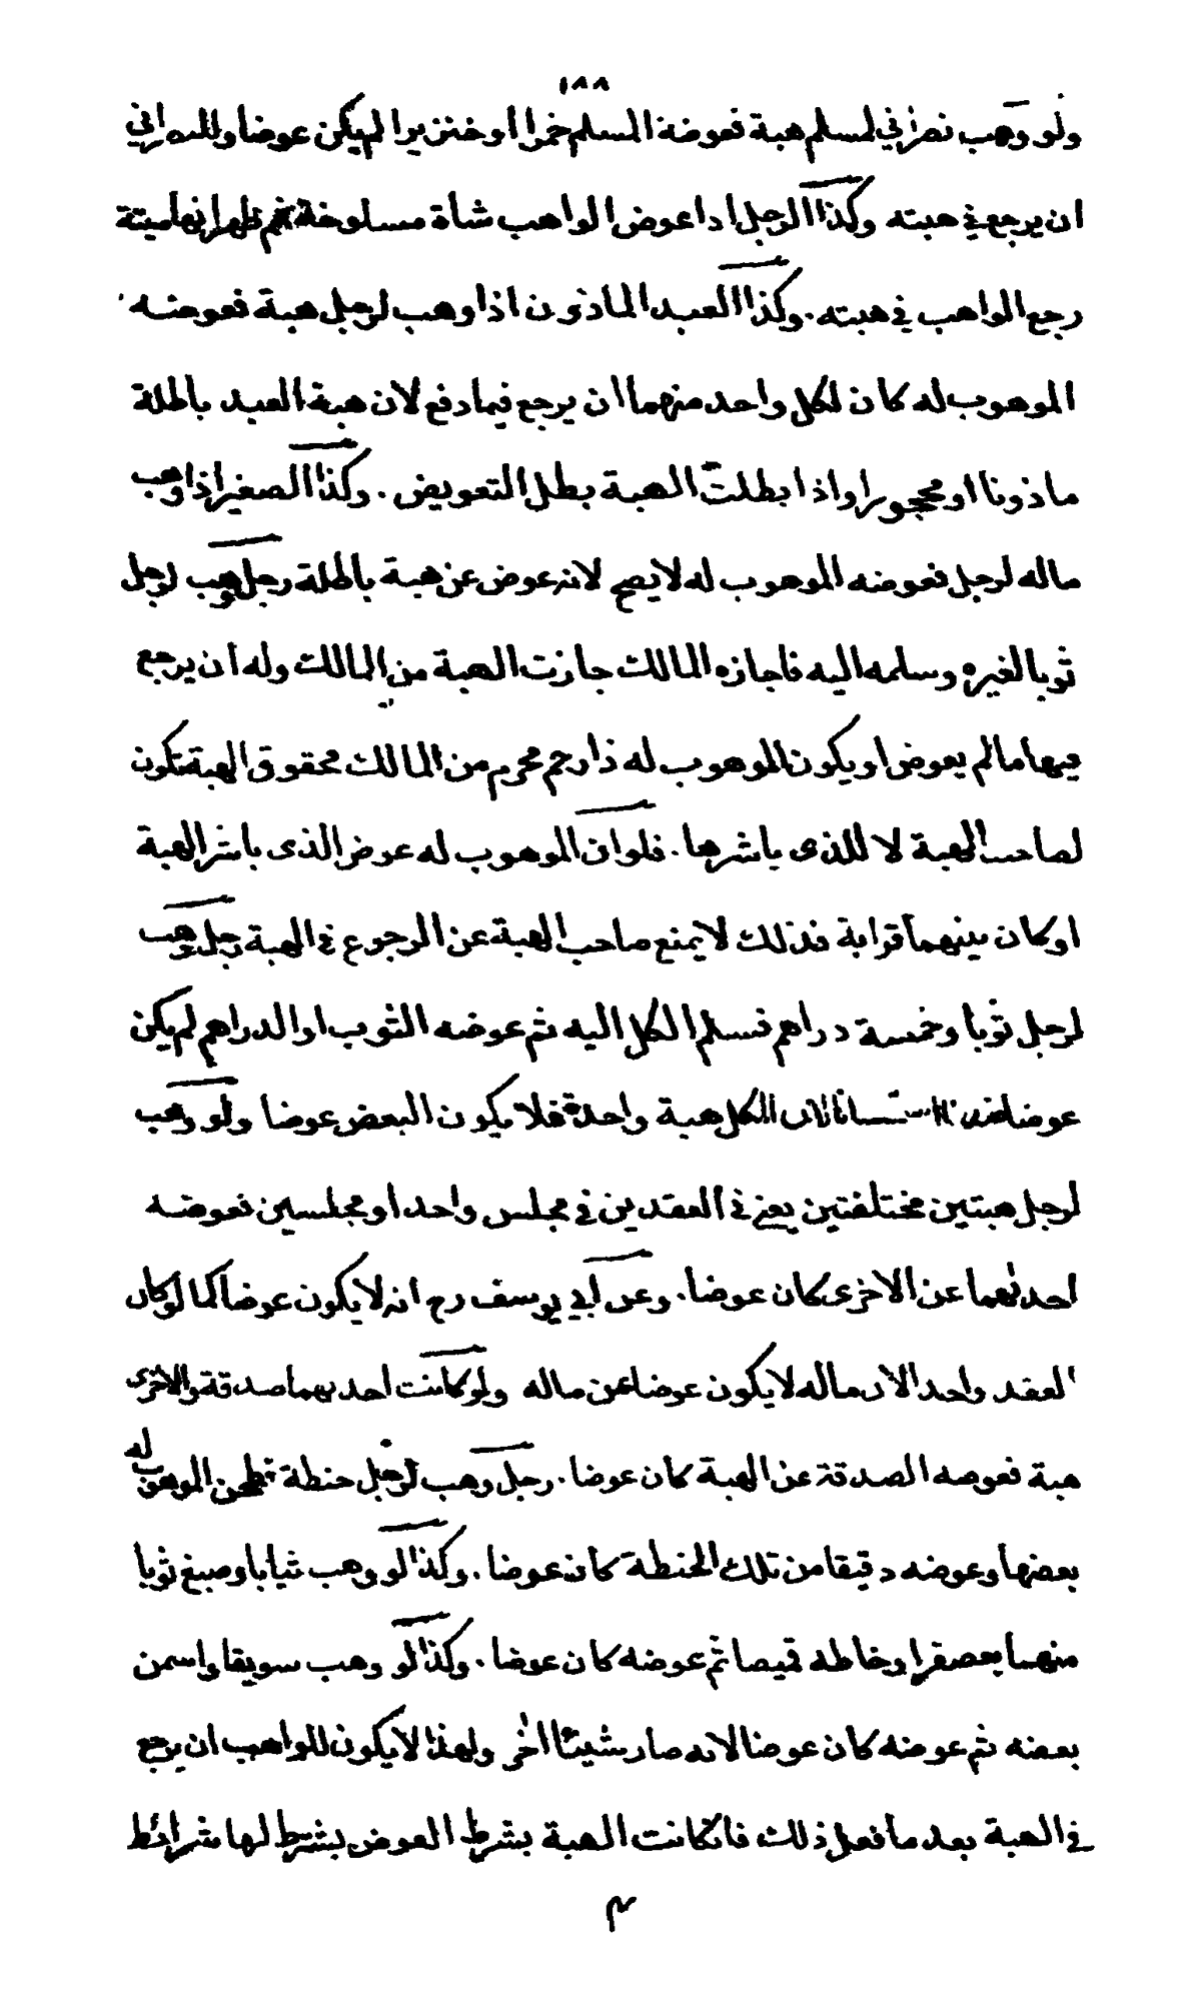 ١٨٨
ولو وهب نصراني لمسلم هبة فعوضه المسلم خمرا او خنزيرا لم يكن عوضا وللنصراني
ان يرجع في هبته وكذا الرجل اذا عوض الواهب شاة مسلوخة ثم ظهر انها ميتة
رجع الواهب في هبته. وكذا العبد الماذون اذا وهب لرجل هبة فعوضه
الموهوب له كان لكل واحد منهما ان يرجع فيما دفع لان هبة العبد باطلة
ماذونا او محجورا واذا بطلت الهبة بطل التعويض. وكذا الصغير اذا وهب
ماله لرجل فعوضه الموهوب له لا يصح لانه عوض عن هبة باطلة رجل وهب لرجل
ثوبا لغيره وسلمه اليه فاجازه المالك جازت الهبة من المالك وله ان يرجع
فيها ما لم يعوض او يكون الموهوب له ذا رحم محرم من المالك فحقوق الهبة تكون
لصاحب الهبة لا للذى باشرها. فلو ان الموهوب له عوض الذى باشر الهبة
او كان بينهما قرابة فذلك لا يمنع صاحب الهبة عن الرجوع في الهبة رجل وهب
لرجل ثوبا وخمسة دراهم فسلم الكل اليه ثم عوضه الثوب او الدراهم لم يكن
عوضا استحسانا لان الكل هبة واحدة فلا يكون البعض عوضا ولو وهب
لرجل هبتين مختلفتين يعني في العقدين في مجلس واحد او مجلسين فعوضه
احدٰهما عن الاخرى كان عوضا. وعن ابي يوسف رح انه لا يكون عوضا كما لو كان
العقد واحد الان ماله لا يكون عوضا عن ماله ولو كانت احدىهما صدقة والاخرى
هبة فعوضه الصدقة عن الهبة كان عوضا. رجل وهب لرجل حنطة فطحن الموهوب له
بعضها وعوضه دقيقا من تلك الحنطة كان عوضا. وكذا لو وهب ثيابا وصبغ ثوبا
منهما بعصفر او خاطه قميصا ثم عوضه كان عوضا. وكذا لو وهب سويقا واسمن
بعضه ثم عوضه كان عوضا لانه صار شيئا اخر ولهذا لا يكون للواهب ان يرجع
في الهبة بعد ما فعل ذلك فان كانت الهبة بشرط العوض يشترط لها شرائط